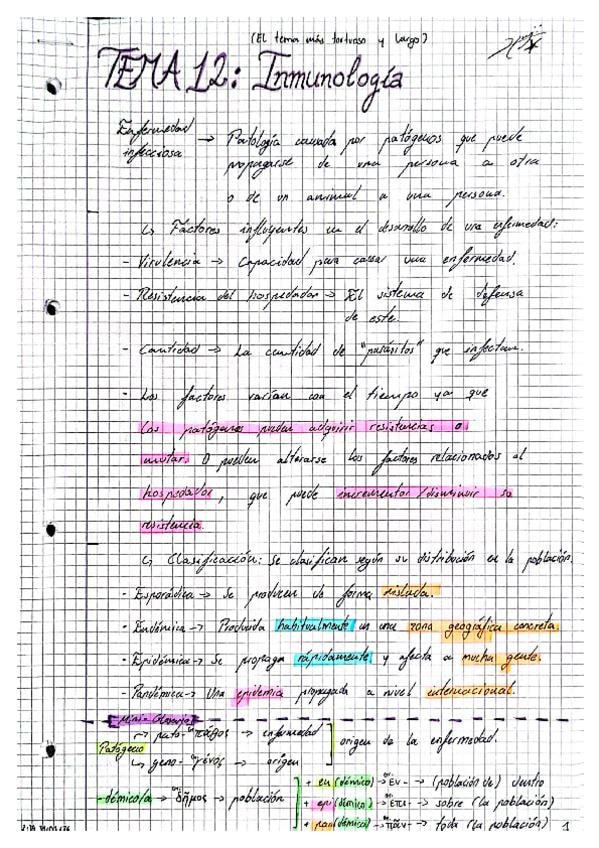 (El tema más tortuoso y largo)
TEMA 12: Inmunología
Enfermedad infecciosa → Patología causada por patógenos que puede
propagarse de una persona a otra
o de un animal a una persona.
↳ Factores influyentes en el desarrollo de una enfermedad:
- Virulencia → Capacidad para causar una enfermedad.
- Resistencia del hospedador → El sistema de defensa
de este.
- Cantidad → La cantidad de "parásitos" que infectan.
- Los factores varían con el tiempo ya que
los patógenos pueden adquirir resistencias o
mutar. O pueden alterarse los factores relacionados al
hospedador, que puede incrementar/disminuir su
resistencia.
↳ Clasificación: Se clasifican según su distribución en la población.
- Esporádica → Se producen de forma aislada.
- Endémica → Producida habitualmente en una zona geográfica concreta.
- Epidémica → Se propaga rápidamente y afecta a mucha gente.
- Pandémica → Una epidemia propagada a nivel internacional.
Mini-Glosario
Patógeno
→ pato- πάθος → enfermedad
↳ geno- γένος → origen
origen de la enfermedad
-démico/a → δῆμος → población
+ en(démico) → ἐν- → (población de) dentro
+ epi(démico) → ἐπι- → sobre (la población)
+ pan(démico) → πᾶν- → toda (la población)
1